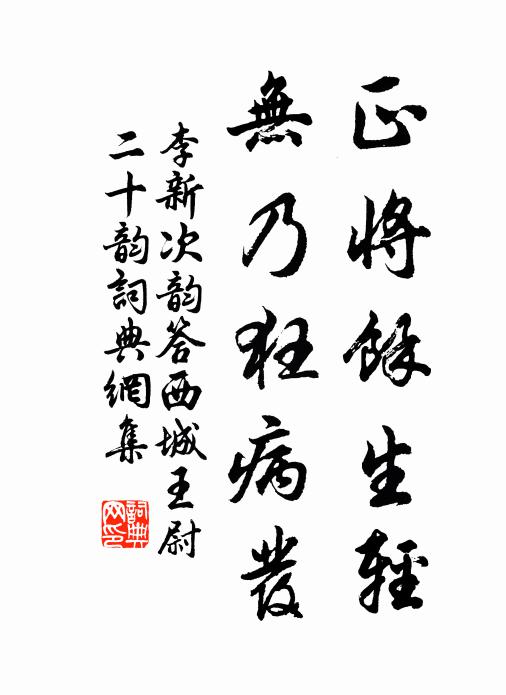 正將餘生輕
無乃狂病發
李新次韵答西城王尉
二十韵詞典網集
詞典网印